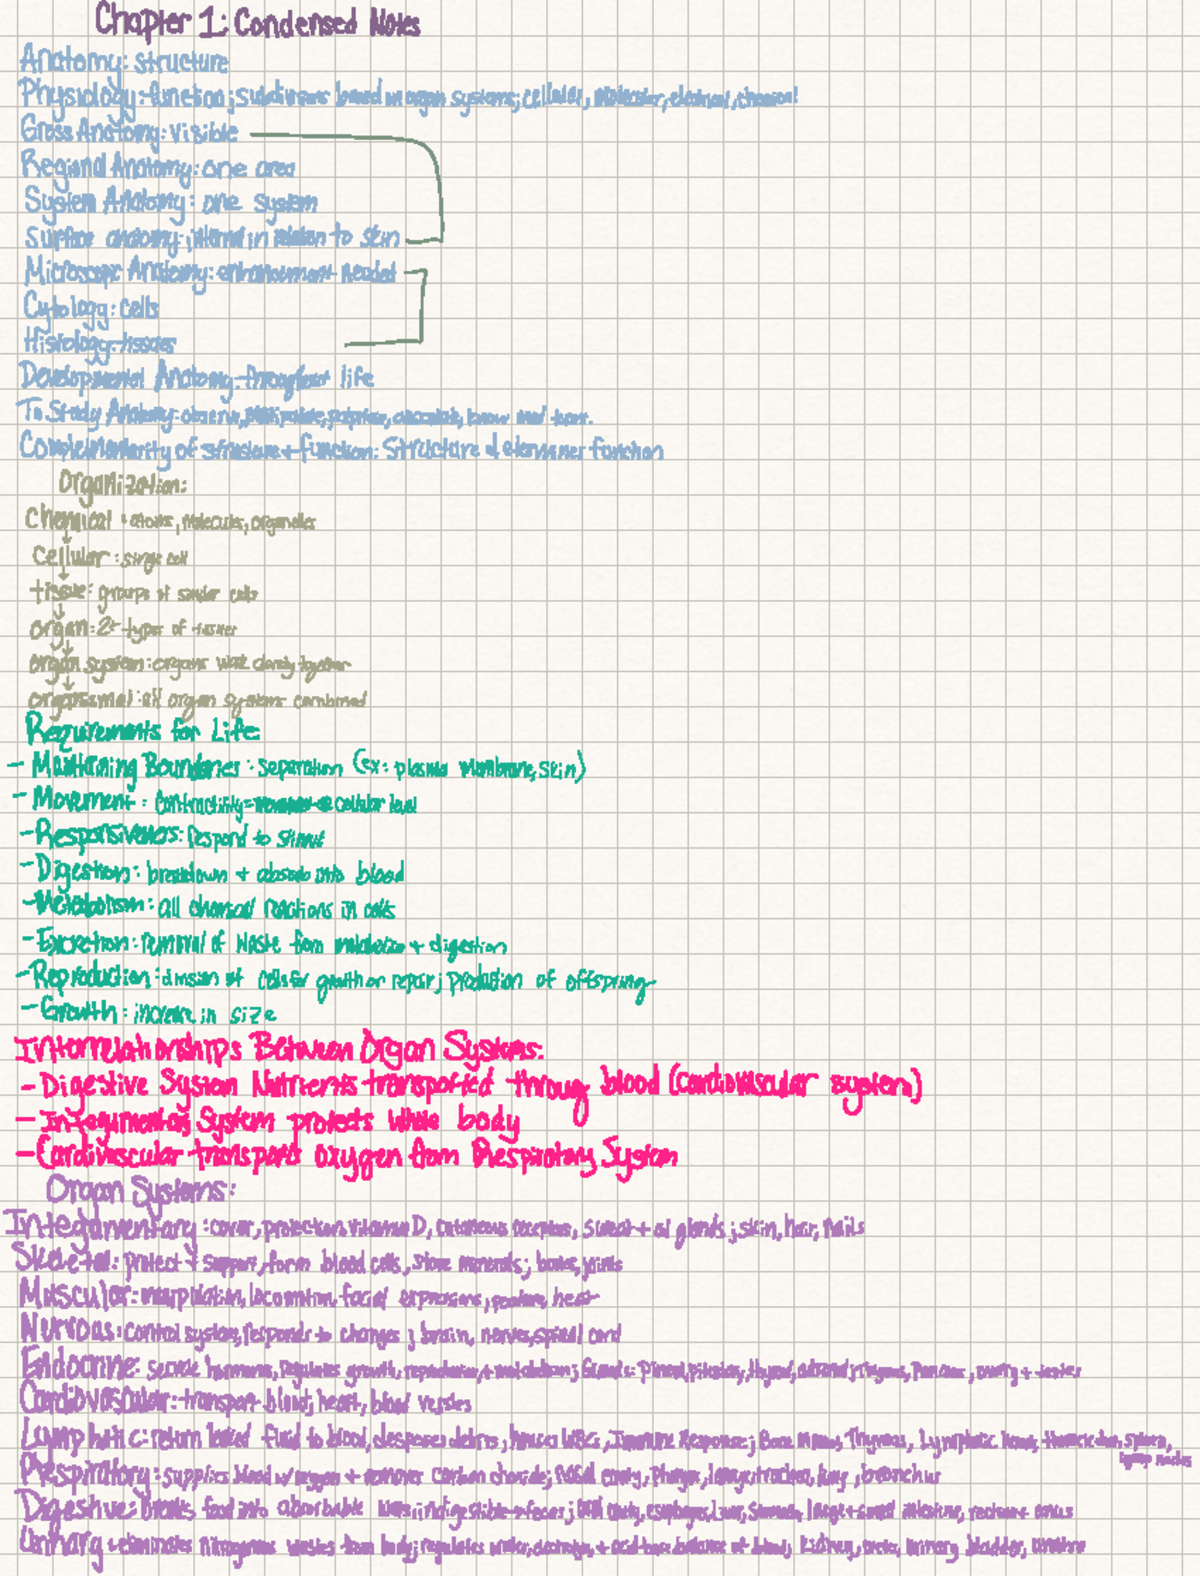 Chapter 1: Condensed Notes
Anatomy: structure
Physiology: function; subdivisions based on organ systems; cellular, molecular, electrical, chemical
Gross Anatomy: visible
Regional Anatomy: one area
System Anatomy: one system
Surface anatomy: internal in relation to skin
Microscopic Anatomy: enhancement needed
Cytology: cells
Histology: tissues
Developmental Anatomy: throughout life
To Study Anatomy: observe, manipulate, palpation, auscultate, know
Complementarity of structure + function: Structure determines function
Organization:
Chemical: atoms, molecules, organelles
Cellular: single cell
tissue: groups of similar cells
organ: 2+ types of tissues
organ system: organs work closely together
organismal: all organ systems combined
Requirements for Life:
- Maintaining Boundaries: separation (ex: plasma membrane, skin)
- Movement: contractility = movement @ cellular level
- Responsiveness: respond to stimuli
- Digestion: breakdown + absorb into blood
- Metabolism: all chemical reactions in cells
- Excretion: removal of waste from metabolism + digestion
- Reproduction: division of cells for growth or repair; production of offspring
- Growth: increase in size
Interrelationships Between Organ Systems:
- Digestive System Nutrients transported through blood (cardiovascular system)
- Integumentary System protects whole body
- Cardiovascular transports oxygen from Respiratory System
Organ Systems:
Integumentary: cover, protection, vitamin D, cutaneous receptors, sweat + oil glands; skin, hair, nails
Skeletal: protect + support, form blood cells, store minerals; bones, joints
Muscular: manipulation, locomotion, facial expressions, posture, heat
Nervous: control system, responds to changes; brain, nerves, spinal cord
Endocrine: secrete hormones, regulates growth, reproduction, + metabolism; Glands: Pineal, pituitary, thyroid, adrenal, thymus, Pancreas, ovary + testes
Cardiovascular: transport blood; heart, blood vessles
Lymphatic: return leaked fluid to blood, disposes debris, houses WBCs, Immune Response; Bone marrow, Thymus, Lymphatic vessels, thoracic duct, spleen, lymph nodes
Respiratory: supplies blood w/ oxygen + removes carbon dioxide; nasal cavity, pharynx, larynx, trachea, lung, bronchus
Digestive: breaks food into absorbable units; indigestible → feces; oral cavity, esophagus, Liver, Stomach, large + small intestine, rectum + anus
Urinary: eliminates nitrogenous wastes from body; regulates water, electrolyte, + acid-base balance of blood; kidney, ureter, urinary bladder, urethra